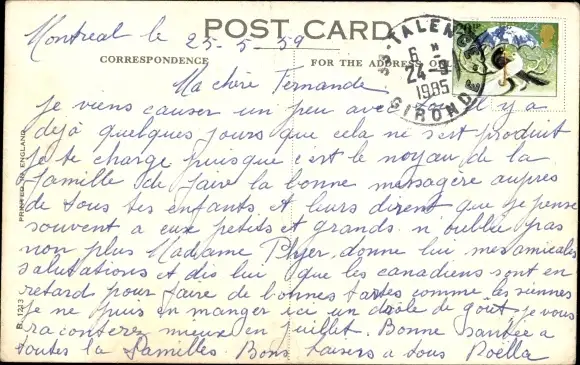 POST CARD
Montreal le 25-5-59
CORRESPONDENCE
FOR THE ADDRESS ONLY
33-TALENCE
6 H
24-9
1985
GIRONDE
Ma chère Fernande
Je viens causer un peu avec Il y a
déjà quelques jours que cela ne s'est produit
Je te charge puisque c'est le noyau de la
famille de faire la bonne messagère aupres
de tous tes enfants et leurs dirent que je pense
souvent a eux petits et grands n oublie pas
non plus Madame donne lui mes amicales
salutations et dis lui que les canadiens sont en
retard pour faire de bonnes tartes comme les siennes
je ne puis en manger ici un drôle de goût je vous
raconterez mieux en juillet. Bonne santée a
toutes la familles. Bons baisers a tous
PRINTED IN ENGLAND
B. 1213